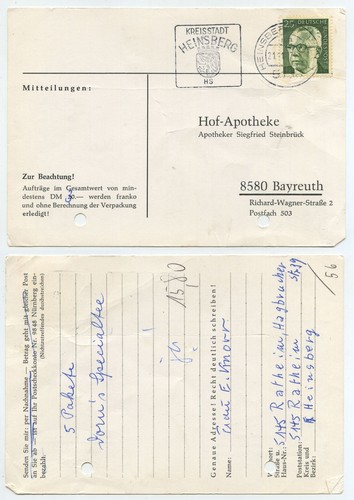 KREISSTADT
HEINSBERG
HS
DEUTSCHE
Mitteilungen:
Hof-Apotheke
Apotheker Siegfried Steinbrück
8580 Bayreuth
Richard-Wagner-Straße 2
Postfach 503
Zur Beachtung!
Aufträge im Gesamtwert von min-
destens DM .— werden franko
und ohne Berechnung der Verpackung
erledigt!
Senden Sie mir: per Nachnahme — Betrag geht mit gleicher Post
an Sie ab — ist auf Ihr Postscheckkonto Nr. 9848 Nürnberg ein-
bezahlt.
(Nichtzutreffendes durchstreichen)
5 Pakete
Spezialtee
15,80
Genaue Adresse! Recht deutlich schreiben!
Name:
E.
Postort:
5145 Ratheim, Hagbrucher
Straße u.
Haus-Nr.:
Str. 79
5145 Ratheim
Poststation:
Kreis und
Bezirk:
Heinsberg
/56